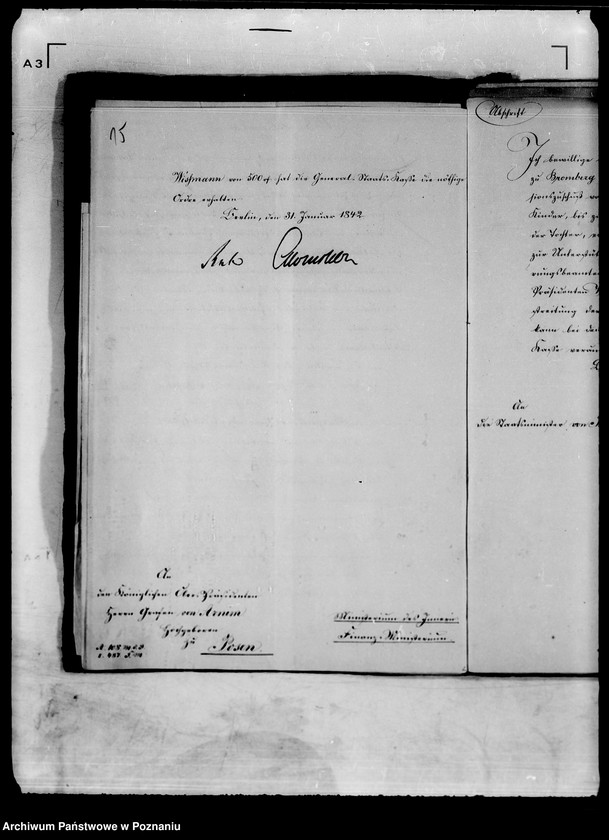 A3
15
Wißmann von 500 rf hat die General-Staats-Kasse die nöthige
Ordre erhalten
Berlin, den 31. Januar 1842
An
den Königlichen Ober-Präsidenten
Herrn Grafen von Arnim
Hochgeboren
zu Posen
Ministerium des Innern
Finanz-Ministerium
Abschrift
Ich bewillige
zu Bromberg
sionszuschuß
Kinder, bis
der Tochter,
zur Unterstüt
rungsbeamten
Präsidenten
streitung der
kann bei der
Kasse
An
die Staatsminister von
Archiwum Państwowe w Poznaniu